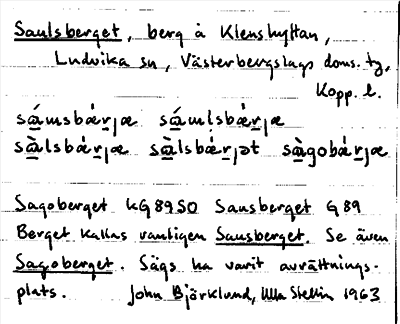 Saulsberget, berg å Klenshyttan,
Ludvika sn, Västerbergslags doms. tg,
Kopp. l.
sáusbǽrjæ sáulsbǽrjæ
sàlsbǽrjæ sàlsbǽrjət sàgobǽrjæ
Sagoberget KG 89 SO Sausberget G 89
Berget kallas vanligen Sausberget. Se även
Sagoberget. Sägs ha varit avrättnings-
plats. John Björklund, Ulla Stellin 1963